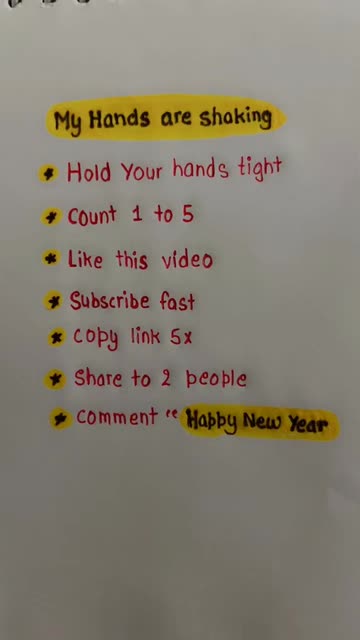 My Hands are shaking
* Hold Your hands tight
* Count 1 to 5
* Like this video
* Subscribe fast
* Copy link 5x
* Share to 2 people
* Comment “ Happy New Year